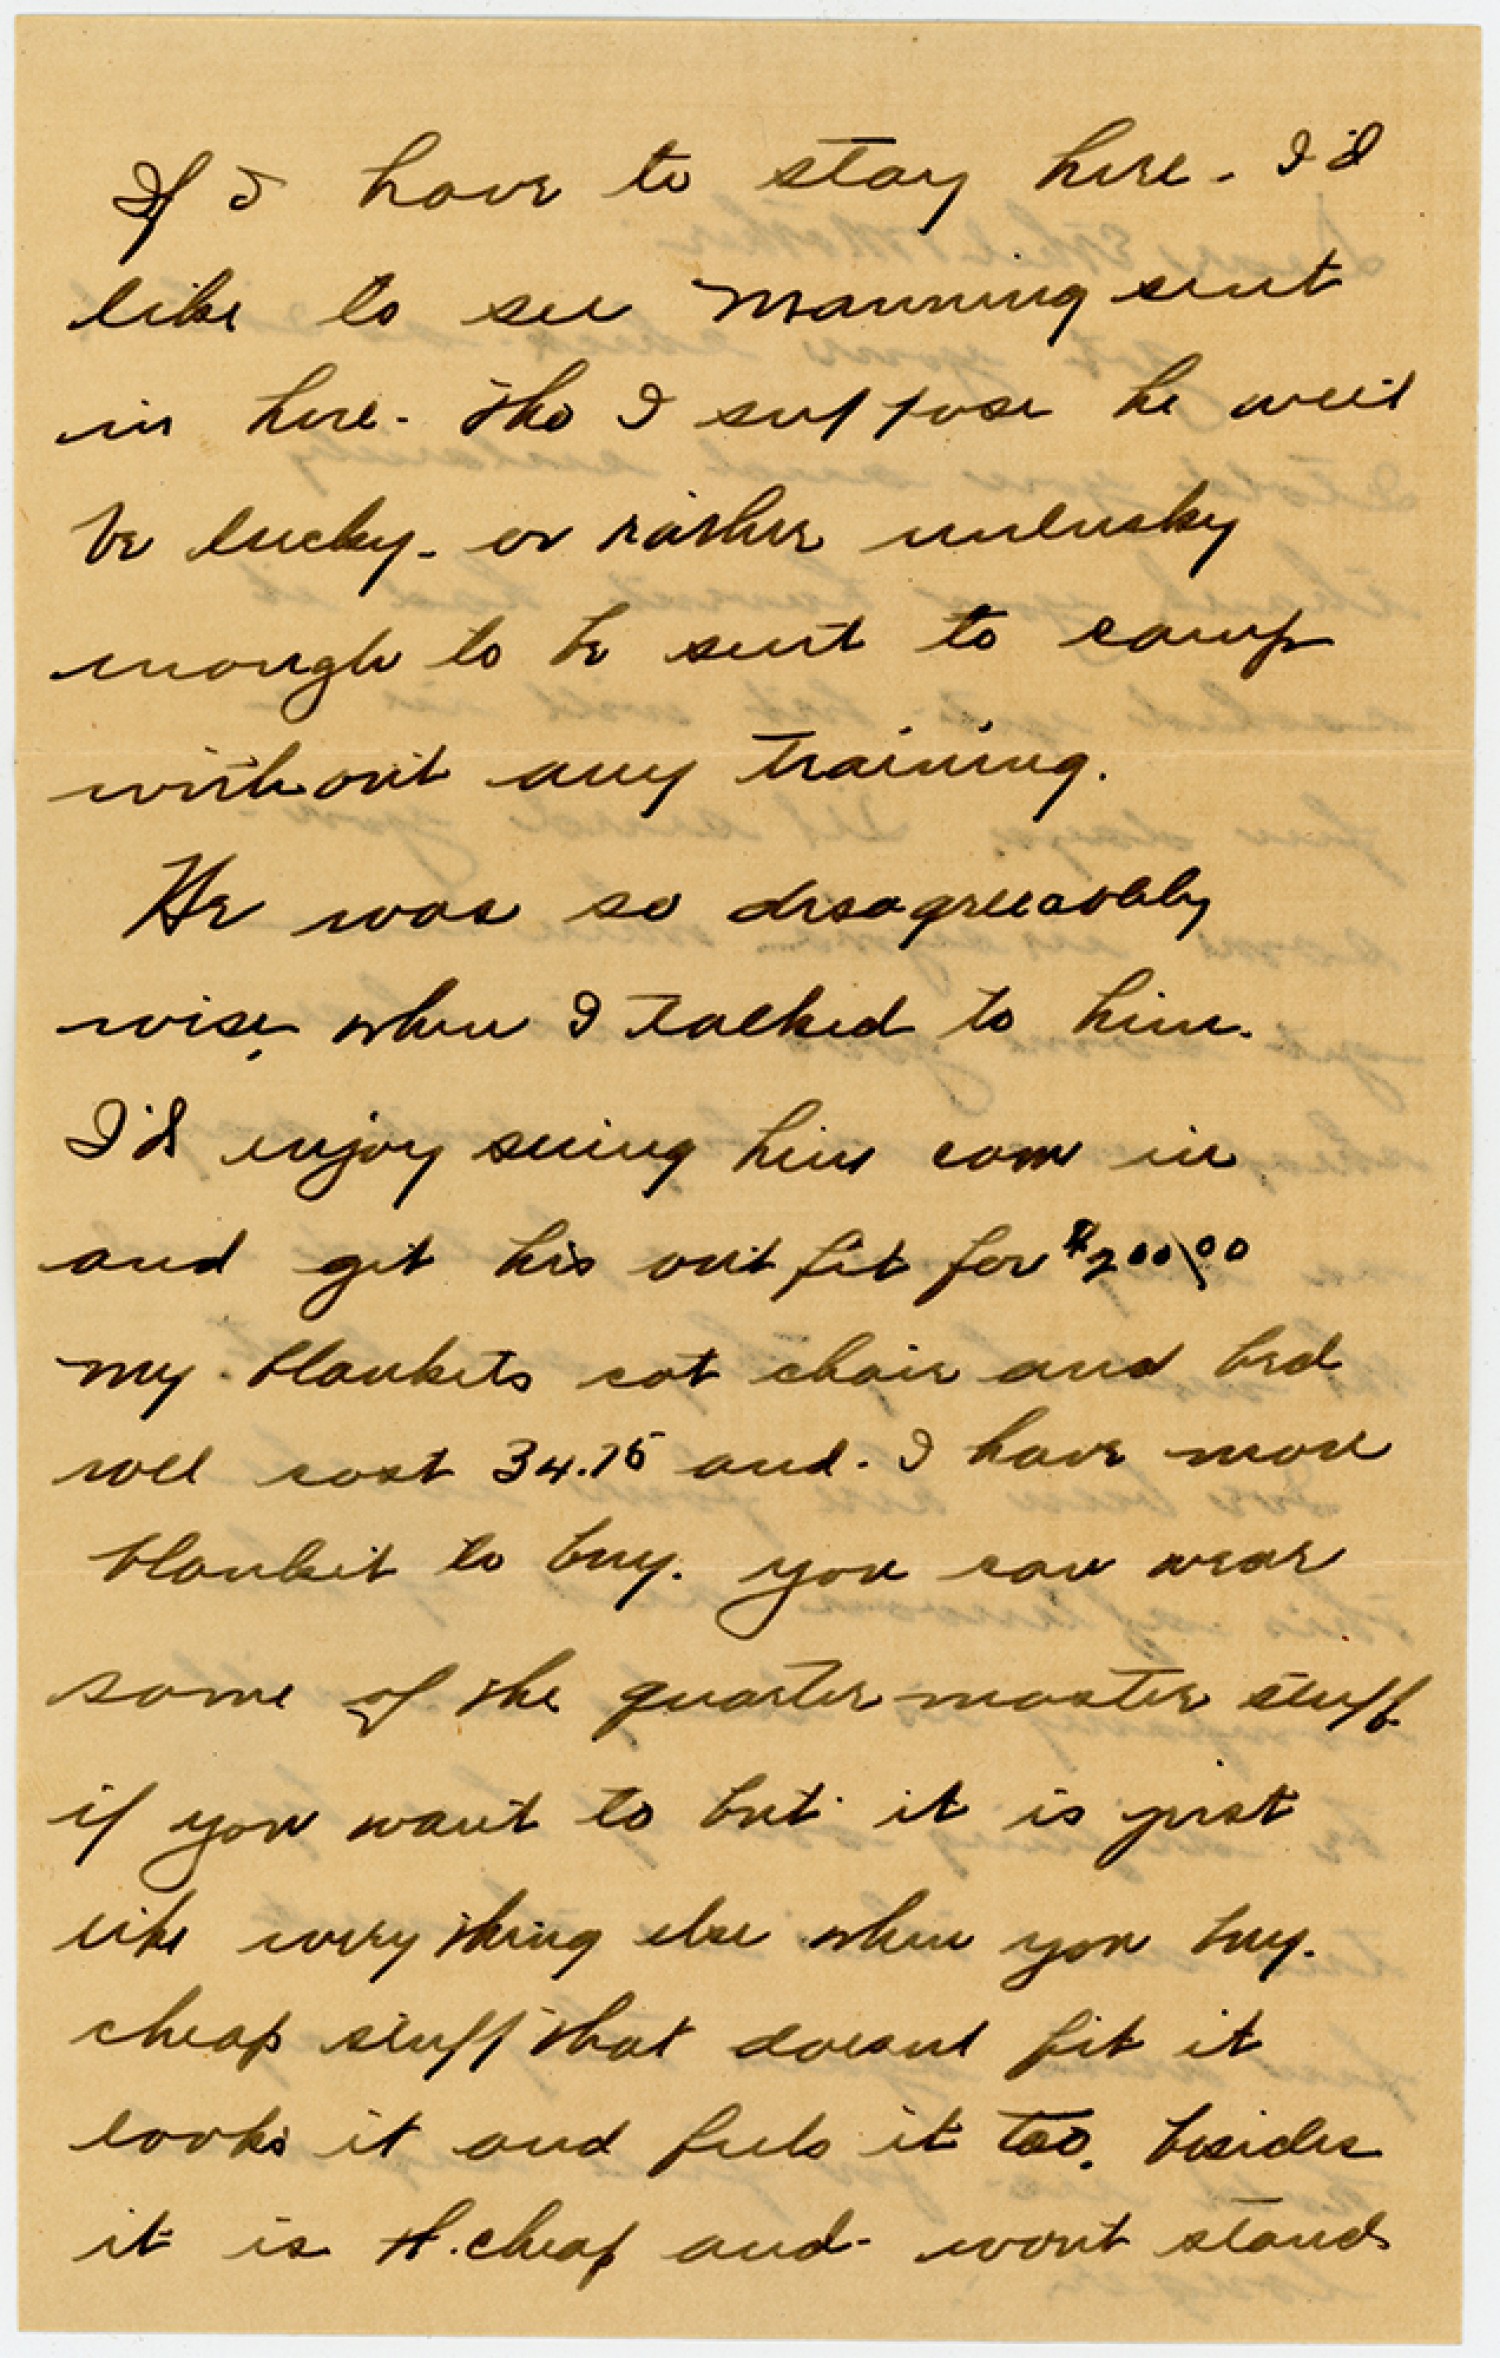 If I have to stay here - I'd
like to see Manning sent
in here - tho I suppose he will
be lucky - or rather unlucky
enough to be sent to camp
without any training.
He was so disagreeably
wise, when I talked to him.
I'd enjoy seeing him come in
and get his out fit for $200\00
my blankets cot chair and bed
roll cost 34.75 and - I have more
blanket to buy. you can wear
some of the quartermaster stuff
if you want to but it is just
like every thing else when you buy.
cheap stuff that doesnt fit it
looks it and feels it too. besides
it is cheap and - wont stand